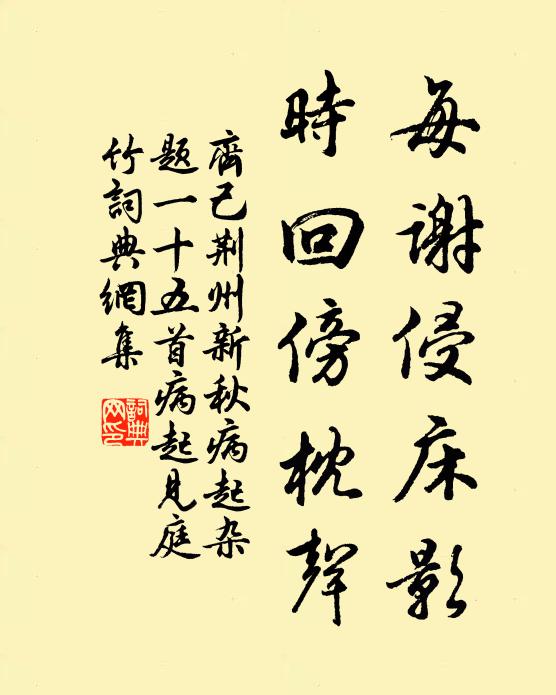 每謝侵床影
時回傍枕聲
齊己荆州新秋病起杂
题一十五首病起見庭
竹詞典網集
詞典
网印